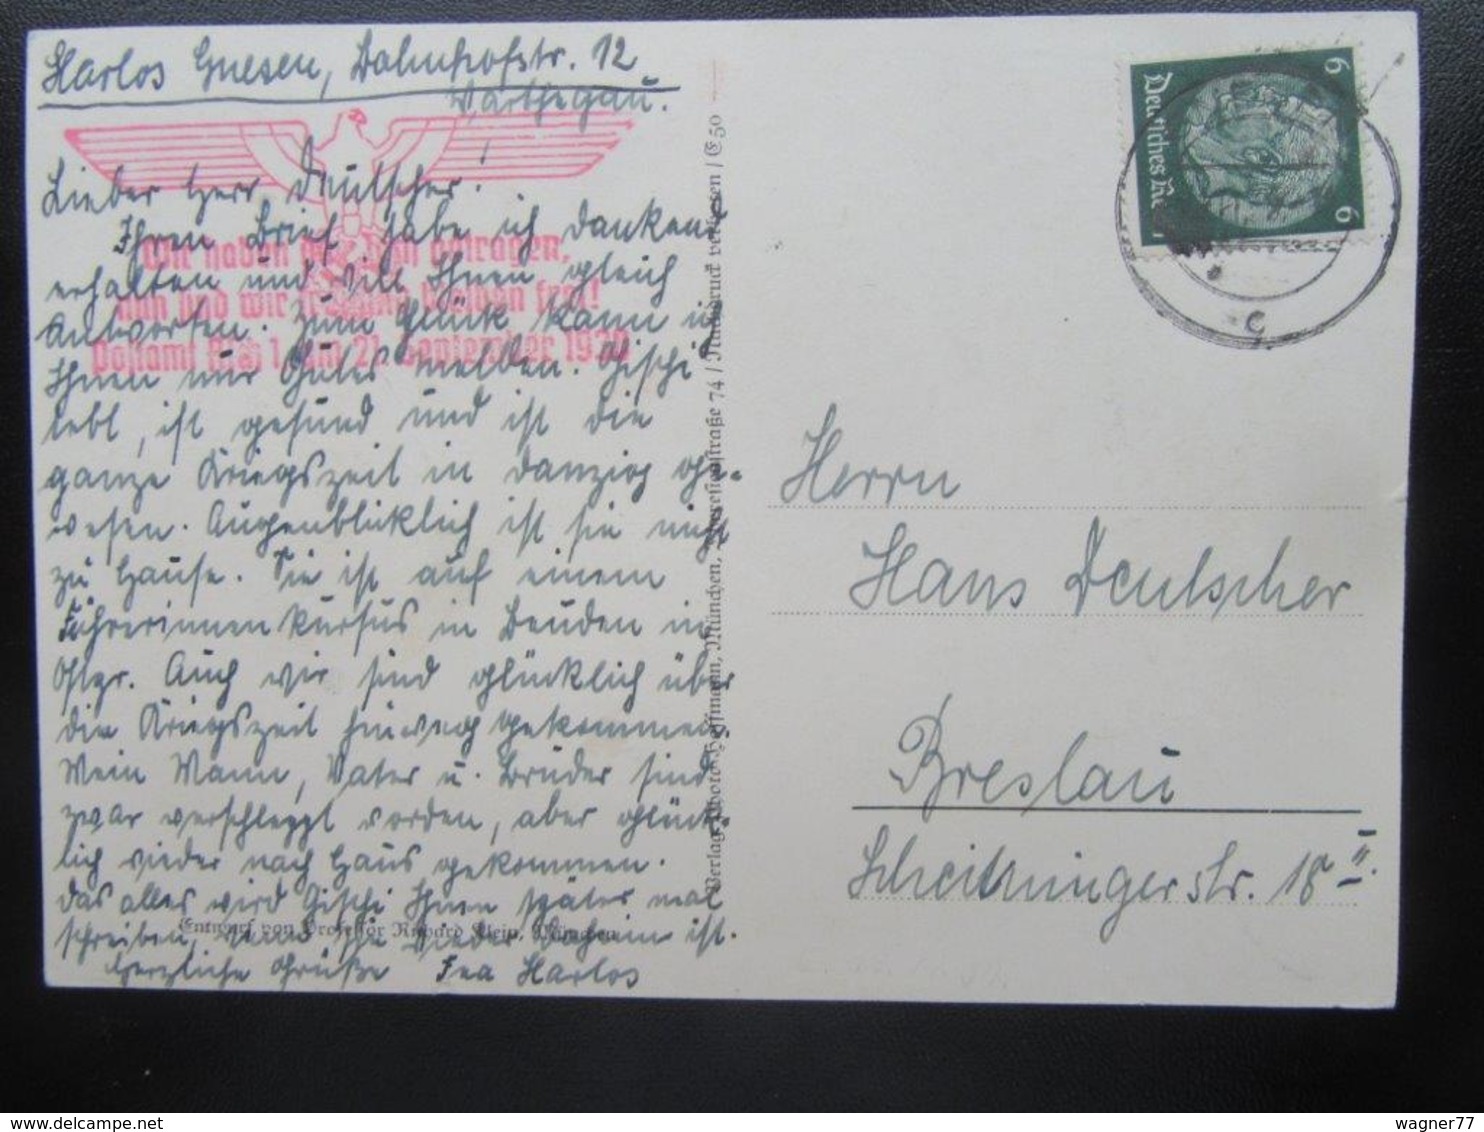 Harlos Gnesen, Bahnhofstr. 12
Warthegau.
Lieber Herr Deutscher!
Ihren Brief habe ich dankend
erhalten und will Ihnen gleich
antworten. Zum Glück kann ich
Ihnen nur Gutes melden. Gischi
lebt, ist gesund und ist die
ganze Kriegszeit in Danzig ge-
wesen. Augenblicklich ist sie nicht
zu Hause. Sie ist auf einem
Führerinnenkursus in Beuden in
Ostpr. Auch wir sind glücklich über
die Kriegszeit hinweg gekommen.
Mein Mann, Vater u. Brüder sind
zwar verschleppt worden, aber glück-
lich wieder nach Haus gekommen.
Das alles wird Gischi Ihnen später mal
schreiben, wenn sie wieder daheim ist.
Herzliche Grüße Fea Harlos
Wir haben getragen,
nun sind wir frei!
Postamt 1 am 21. September 1939
Entwurf von Professor Richard Klein, München
Verlag Photo-Hoffmann, München, Theresienstraße 74 / Nachdruck verboten / E 50
Deutsches Re
6
6
c
Herrn
Hans Deutscher
Breslau
Scheitningerstr. 18 II.
wagner77